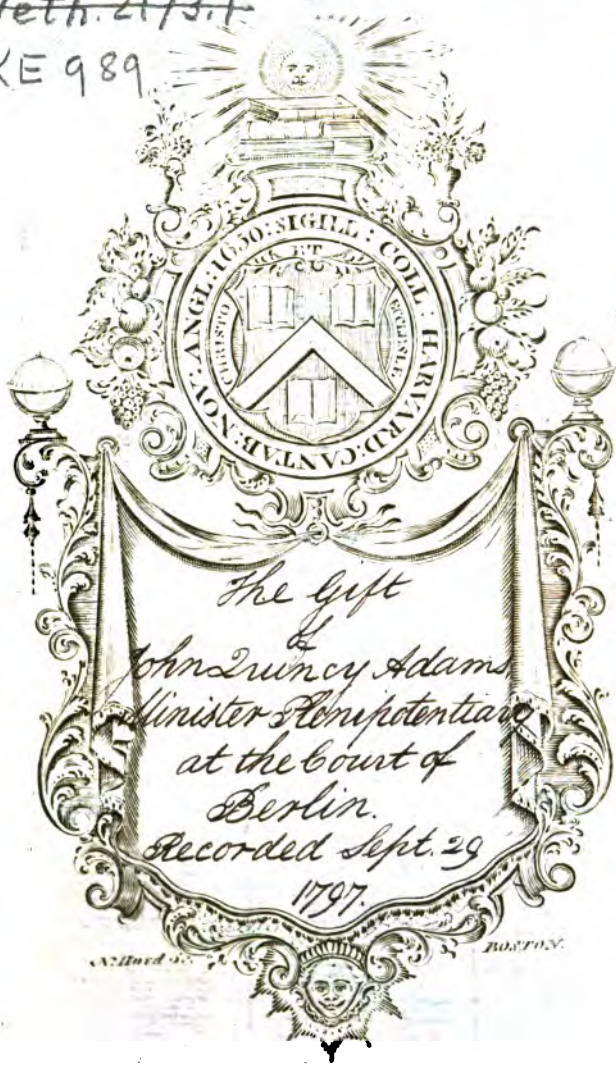 Neth. 2173.1
KE 989
SIGILL : COLL : HARVARD : CANTAB : NOV : ANGL : 1650 :
ET
CHRISTO
ECCLESIÆ
The Gift
of
John Quincy Adams
Minister Plenipotentiary
at the Court of
Berlin.
Recorded Sept. 29
1797.
N. Hurd Sc.
BOSTON.